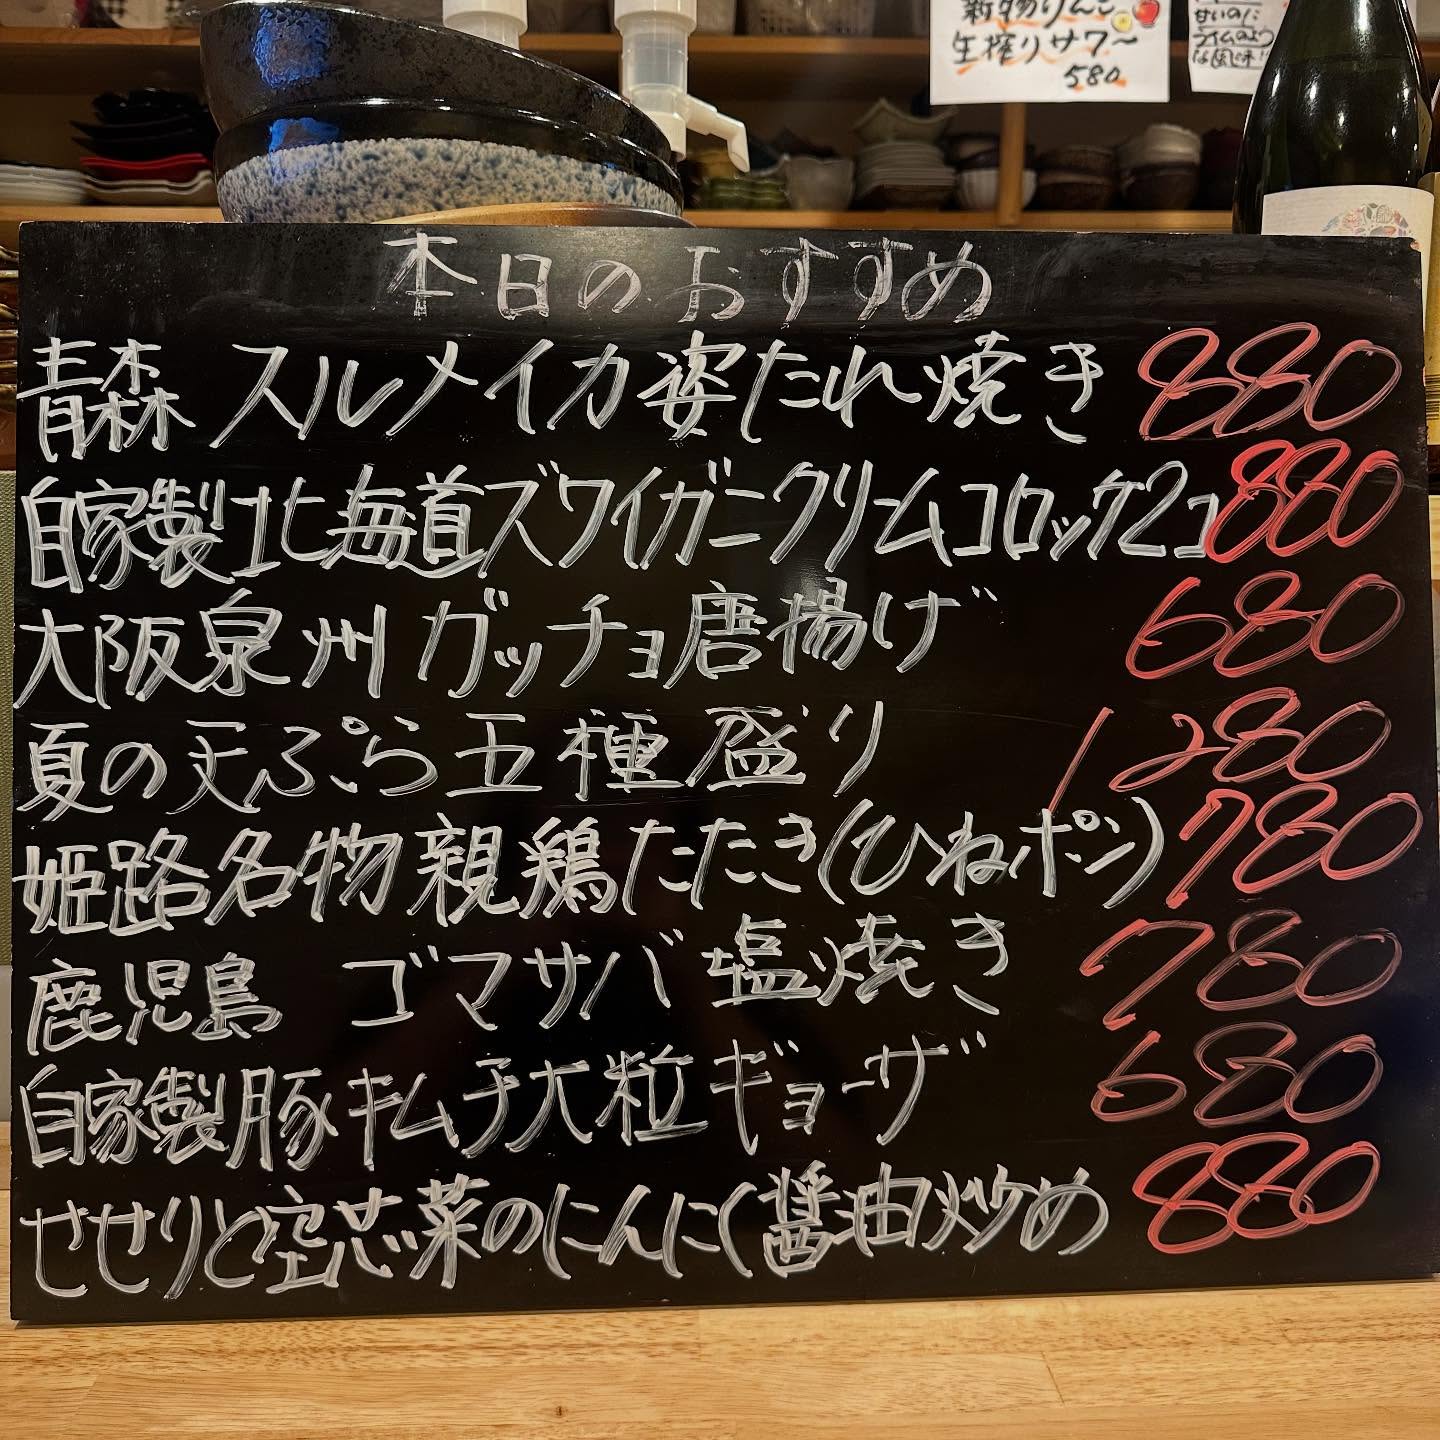 新物りんご
生搾りサワー
580
本日のおすすめ
青森 スルメイカ姿たれ焼き 880
自家製北海道ズワイガークリームコロッケ2コ 880
大阪泉州 ガッチョ唐揚げ 680
夏の天ぷら五種盛り 1280
姫路名物親鶏たたき(ひねポン) 780
鹿児島 ゴマサバ 塩焼き 780
自家製豚キムチ大粒ギョーザ 680
せせりと空芯菜のにんにく醤油炒め 880